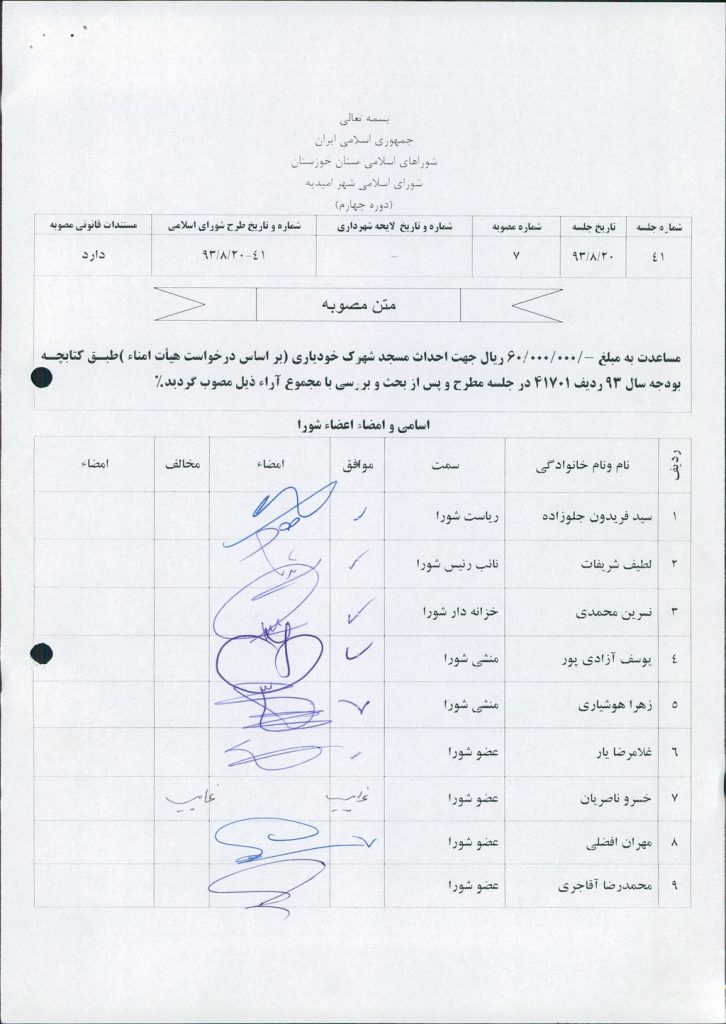 بسمه تعالی
جمهوری اسلامی ایران
شوراهای اسلامی ستان خوزستان
شورای اسلامی شهر امیدیه
(دوره چهارم)
شماره جلسه تاریخ جلسه شماره مصوبه شماره و تاریخ لایحه شهرداری شماره و تاریخ طرح شورای اسلامی مستندات قانونی مصوبه
٤١ ۹۳/۸/۲۰ ۷ - ۹۳/۸/۲۰-٤١ دارد
متن مصوبه
مساعدت به مبلغ -/۶۰/۰۰۰/۰۰۰ ریال جهت احداث مسجد شهرک خودیاری (بر اساس درخواست هیأت امناء )طبق کتابچه
بودجه سال ۹۳ ردیف ۴۱۷۰۱ در جلسه مطرح و پس از بحث و بررسی با مجموع آراء ذیل مصوب گردید.٪
اسامی و امضاء اعضاء شورا
ردیف نام ونام خانوادگی سمت موافق امضاء مخالف امضاء
۱ سید فریدون جلوزاده ریاست شورا
۲ لطیف شریفات نائب رئیس شورا
۳ نسرین محمدی خزانه دار شورا
۴ یوسف آزادی پور منشی شورا
۵ زهرا هوشیاری منشی شورا
۶ غلامرضا یار عضو شورا
۷ خسرو ناصریان عضو شورا غایب غایب
۸ مهران افضلی عضو شورا
۹ محمدرضا آقاجری عضو شورا